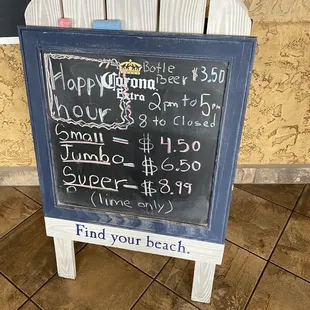 Happy hour
Botle Beer $3.50
Corona Extra
2pm to 5pm
8 to Closed
Small = $ 4.50
Jumbo - $ 6.50
Super - $ 8.99
(lime only)
Find your beach.